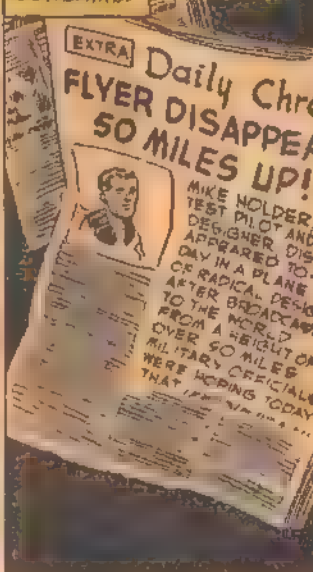 EXTRA
Daily Chro
FLYER DISAPPEA
50 MILES UP!
MIKE HOLDER
TEST PILOT AND
DESIGNER DIS
APPEARED TO
DAY IN A PLANE
OF RADICAL DESIG
AFTER BROADCAS
TO THE WORLD
FROM A HEIGHT OF
OVER 50 MILES
MILITARY OFFICIALS
WERE HOPING TODAY
THAT